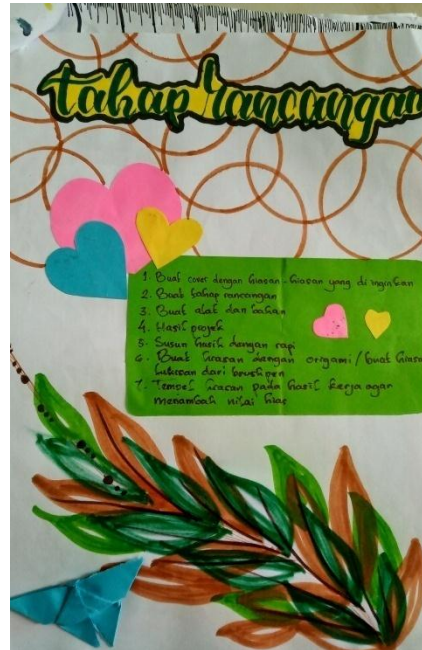 tahap rancangan
1. Buat cover dengan hiasan-hiasan yang di inginkan
2. Buat tahap rancangan
3. Buat alat dan bahan
4. Hasil projek
5. Susun hasil dengan rapi
6. Buat hiasan dengan origami / buat hiasan
lukisan dari brushpen
7. Tempel hiasan pada hasil kerja agar
menambah nilai hias